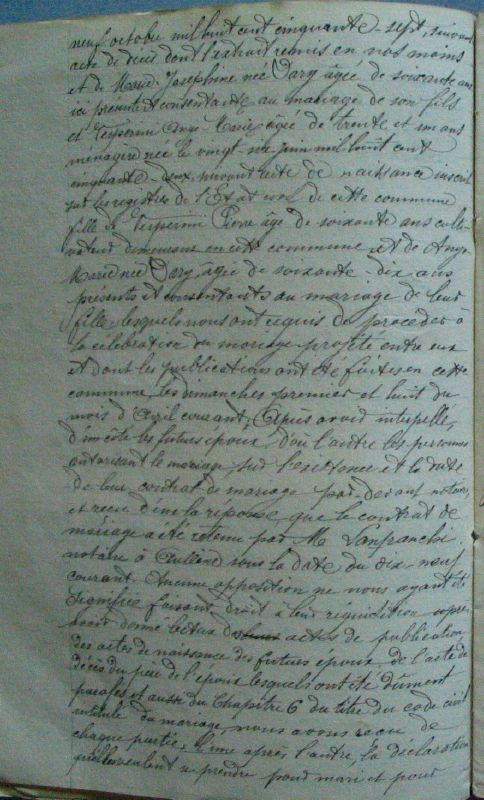 neuf octobre mil huit cent cinquante-sept, suivant
acte de décès dont l'extrait remis en nos mains
et de Marie Josephine née Sarg âgée de soixante ans
ici présente et consentante au mariage de son fils
et Vesperini Ange Marie âgée de trente et un ans
ménagère née le vingt juin mil huit cent
cinquante-deux suivant acte de naissance inscrit
sur les registres de l'Etat civil de cette commune
fille de Vesperini Pierre âgé de soixante ans culti-
vateur demeurant en cette commune et de Ange
Marie née Sarg âgée de soixante-dix ans
présents et consentants au mariage de leur
fille, lesquels nous ont requis de procéder à
la célébration du mariage projeté entre eux
et dont les publications ont été faites en cette
commune, les dimanches premier et huit du
mois d'Avril courant, Après avoir interpellé,
d'un côté les futurs époux, d'où l'autre les personnes
autorisant le mariage, sur l'existence et la date
de leur contrat de mariage par-devant notaire,
et reçu d'eux la réponse que le contrat de
mariage a été retenu par M. Lanfranchi
notaire à Aullène sous la date du dix-neuf
courant. Aucune opposition ne nous ayant été
signifiée faisant droit à leur réquisition après
avoir donné lecture des actes de publication
des actes de naissance des futurs époux, de l'acte de
décès du père de l'époux lesquels ont été dûment
parafés et aussi du Chapitre 6 du titre du code civil
intitulé du mariage, nous avons reçu de
chaque partie, l'une après l'autre la déclaration
qu'elles veulent se prendre pour mari et pour